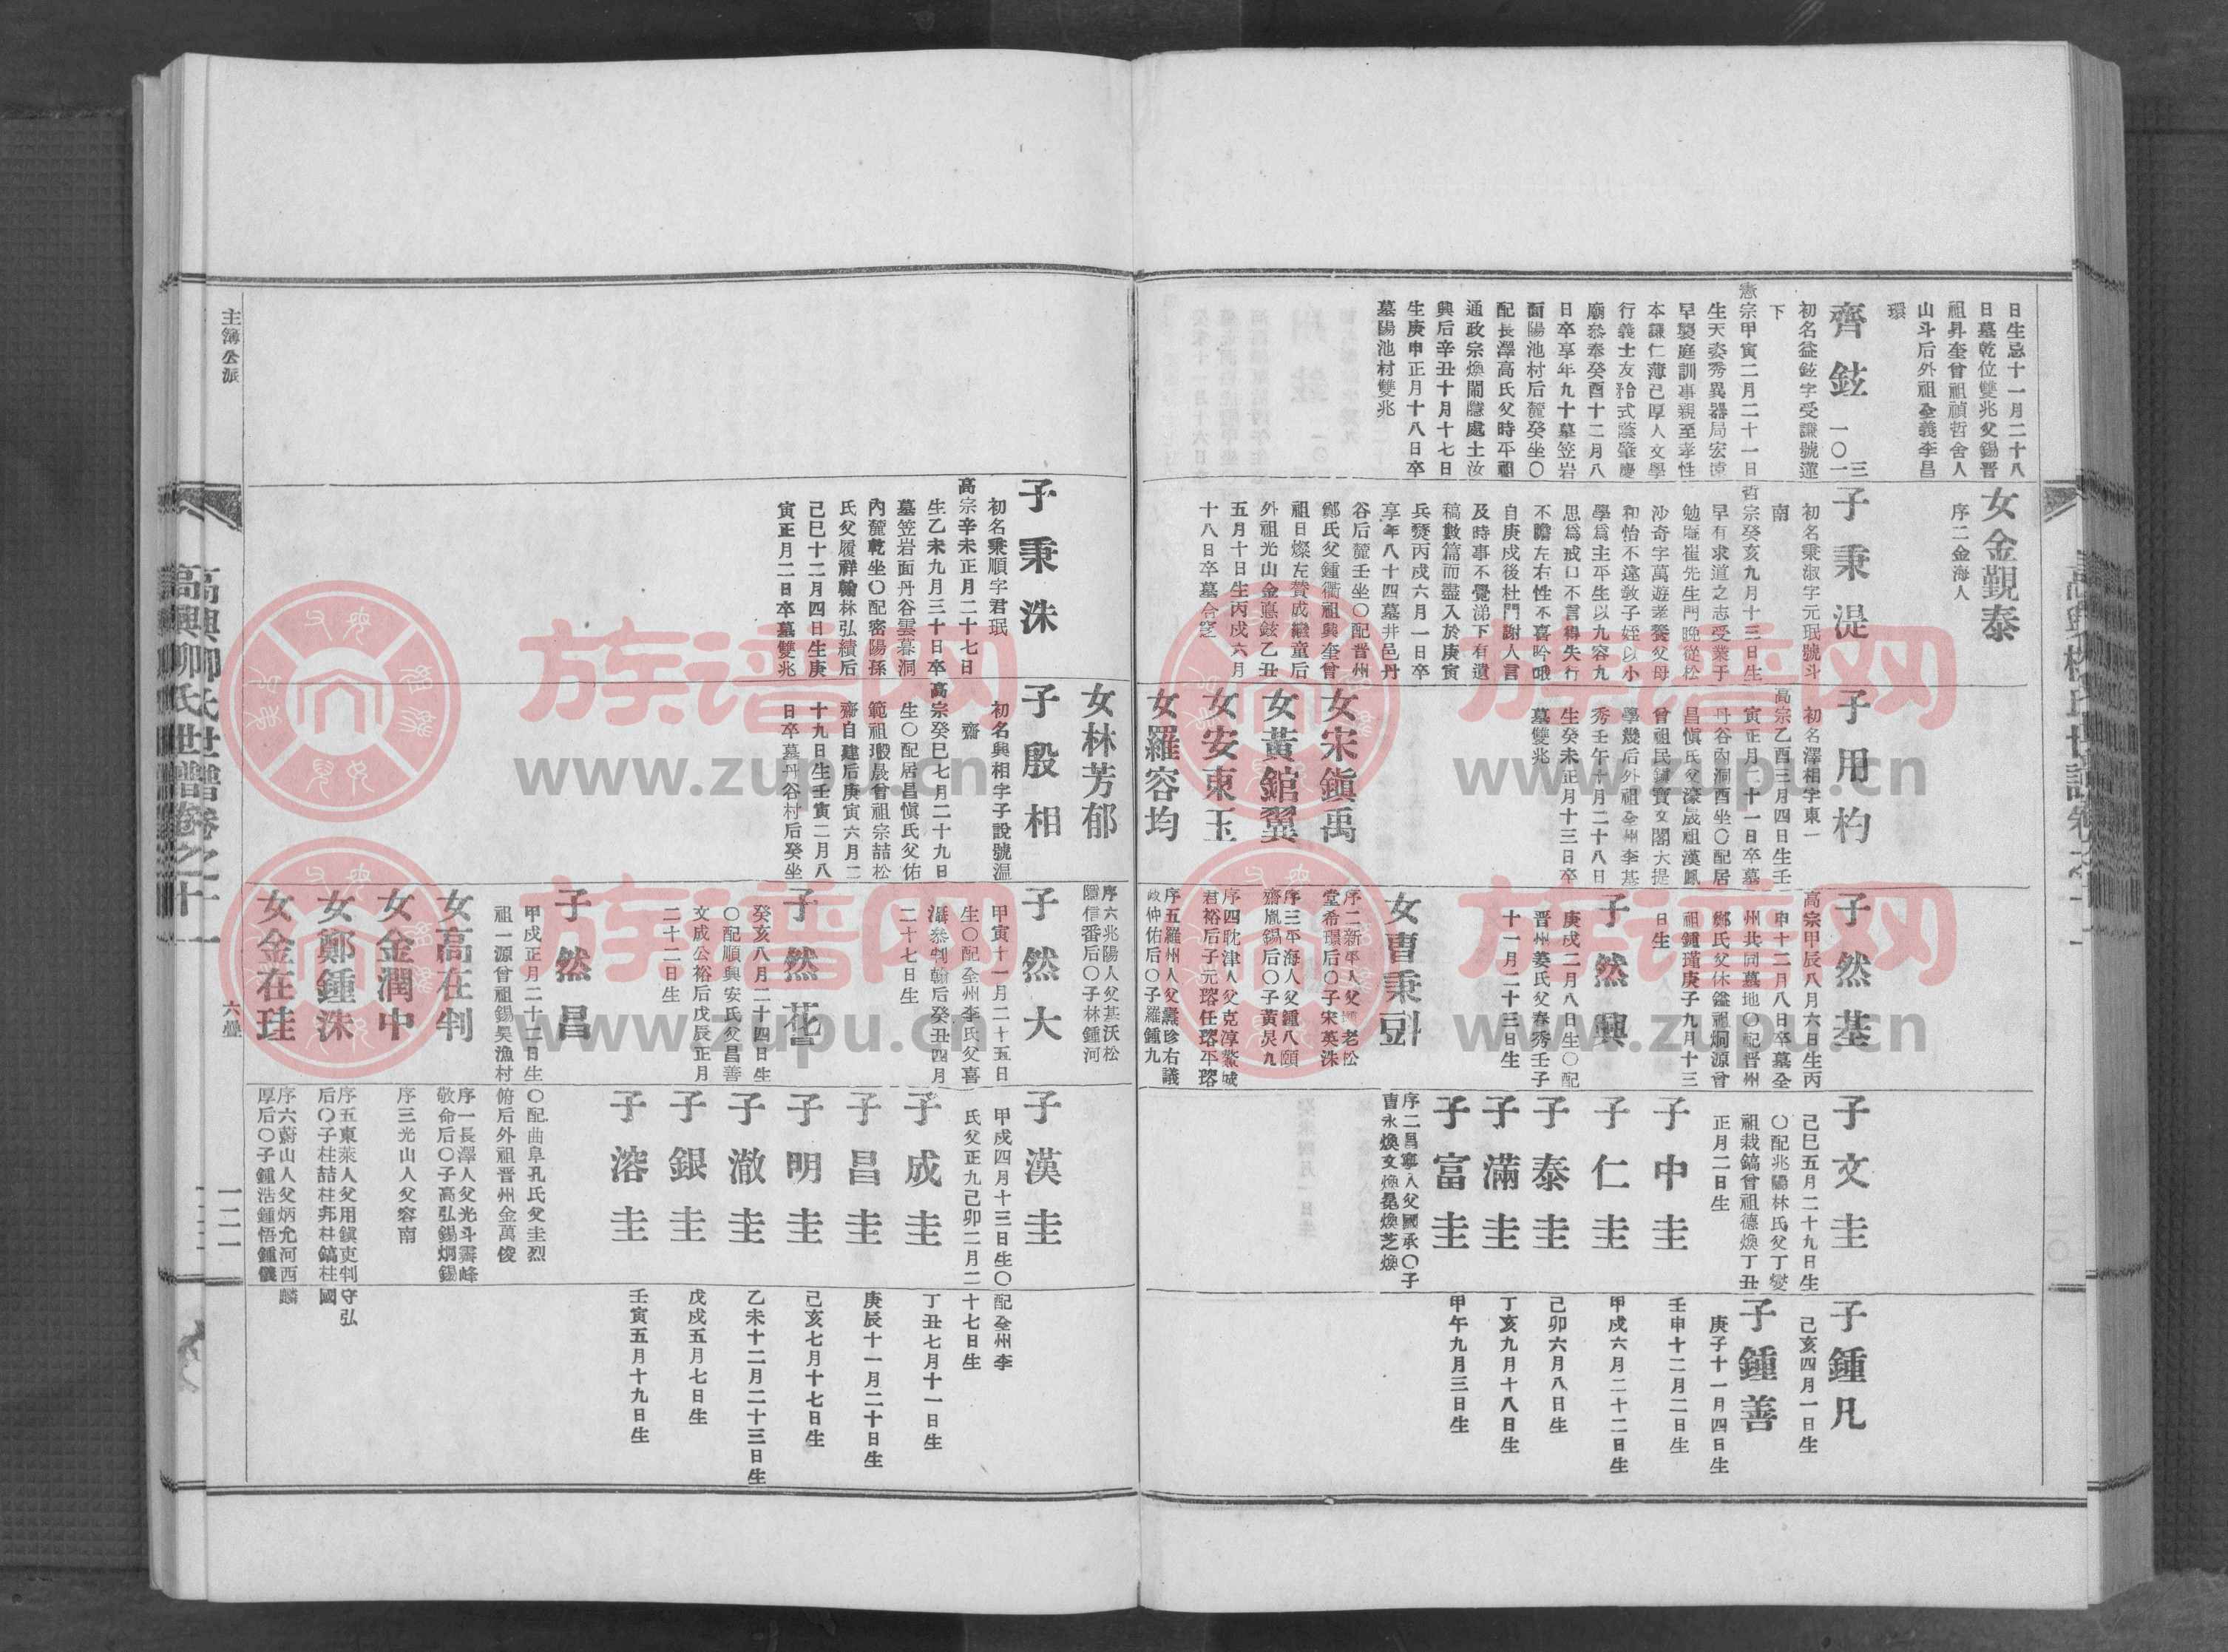 日生忌十一月二十八
日墓乾位雙兆父錫晋
祖昇奎曾祖禎哲舍人
山斗后外祖全義李昌
環
齊鉉 一〇一三
初名益鉉字受謙號蓮
下
憲宗甲寅二月二十一日
生天姿秀異器局宏遠
早襲庭訓事親至孝性
本謙仁薄己厚人文學
行義士友矜式蔭肇慶
廟叅奉癸酉十二月八
日卒享年九十墓笠岩
面陽池村后麓癸坐〇
配長澤高氏父時平祖
通政宗煥閣隱處士汝
興后辛丑十月十七日
生庚申正月十八日卒
墓陽池村雙兆
女金觀泰
序二金海人
子秉湜
初名秉淑字元珉號斗
南
哲宗癸亥九月十三日生
早有求道之志受業于
勉庵崔先生門晩從松
沙奇字萬遊孝養父母
和怡不遠敎子姪以小
學爲主平生以九容九
思爲戒口不言得失行
不瞻左右性不喜吟哦
自庚戌後杜門謝人言
及時事不覺涕下有遺
稿數篇而盡入於庚寅
兵燹丙戌六月一日卒
享年八十四墓井邑丹
谷后麓壬坐〇配晋州
鄭氏父鍾衢祖興奎曾
祖日燦左贊成繼童后
外祖光山金憙鉉乙丑
五月十日生丙戌六月
十八日卒墓合窆
子用杓
初名澤相字東一
高宗乙酉三月四日生壬
寅正月二十一日卒墓
丹谷內洞酉坐〇配居
昌愼氏父濠晟祖漢鳳
曾祖民鎭寶文閣大提
學幾后外祖全州李基
秀壬午十月二十八日
生癸未正月十三日卒
墓雙兆
女宋鎭禹
女黃錧翼
女安東玉
女羅容均
子然基
高宗甲辰八月六日生丙
申十二月八日卒墓全
州共同墓地〇配晋州
鄭氏父休鎰祖炯源曾
祖鍾瑾庚子九月十三
日生
子然興
庚戌二月八日生〇配
晋州姜氏父春秀壬子
十一月二十三日生
女曺秉㔕
序二新平人父老松
堂希璟后〇子宋英洙
序三平海人父鍾八頤
齋胤錫后〇子黃炅九
序四耽津人父克淳鰲城
君裕后子元瑢任瑢平瑢
序五羅州人父鸞珍右議
政仲佑后〇子羅鍾九
子文圭
己巳五月二十九日生
〇配兆陽林氏父丁燮
祖栽鎬曾祖德煥丁丑
正月二日生
子中圭
子仁圭
子泰圭
子滿圭
子富圭
序二昌寧人父國承〇子
曺永煥文煥昆煥芝煥
子鍾凡
己亥四月一日生
子鍾善
庚子十一月四日生
壬申十二月二日生
甲戌六月二十二日生
己卯六月八日生
丁亥九月十八日生
甲午九月三日生
子秉洙
初名乘順字君珉
高宗辛未正月二十七日
生乙未九月三十日卒
墓笠岩面丹谷雲暮洞
內麓乾坐〇配密陽孫
氏父履祥翰林弘績后
己巳十二月四日生庚
寅正月二日卒墓雙兆
女林芳郁
子殷相
初名興相字子說號温
齋
高宗癸巳七月二十九日
生〇配居昌愼氏父佑
範祖瑖晟曾祖宗喆松
齋自建后庚寅六月二
十九日生壬寅二月八
日卒墓丹谷村后癸坐
序六兆陽人父基沃松
隱信番后〇子林鍾河
子然大
甲寅十一月二十五日
生〇配全州李氏父喜
灝叅判翰后癸丑四月
二十七日生
子然花
癸亥八月二十四日生
〇配順興安氏父昌善
文成公裕后戊辰正月
二十二日生
子然昌
甲戌正月二十二日生
祖一源曾祖錫昊漁村
女高在判
女金潤中
女鄭鍾洙
女金在珪
子漢圭
甲戌四月十三日生〇
氏父正九己卯二月二
子成圭
子昌圭
子明圭
子澈圭
子銀圭
子溶圭
〇配曲阜孔氏父圭烈
俯后外祖晋州金萬俊
序一長澤人父光斗霽峰
敬命后〇子高弘錫炯錫
序三光山人父容南
序五東萊人父用鎭吏判守弘
后〇子柱喆柱邦柱鎬柱國
序六蔚山人父炳允河西麟
厚后〇子鍾浩鍾悟鍾儀
配全州李
十七日生
丁丑七月十一日生
庚辰十一月二十日生
己亥七月十七日生
乙未十二月二十三日生
戊戌五月七日生
壬寅五月十九日生
主簿公派
高興柳氏世譜卷之十一
六疊
一二一
族谱网
www.zupu.cn
族谱网
www.zupu.cn
族谱网
www.zupu.cn
族谱网
www.zupu.cn